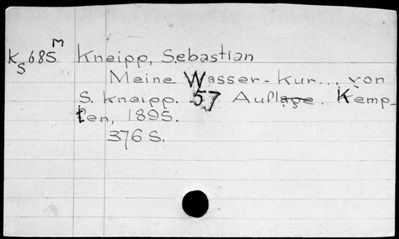 K 685 m Kneipp, Sebastian
S
Meine Wasser-Kur... von
S. Kneipp. 57 Auflage. Kemp-
ten, 1895.
376 S.